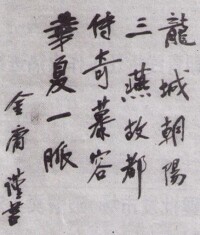 龍城朝陽
三燕故都
传奇慕容
華夏一脈
金庸謹書